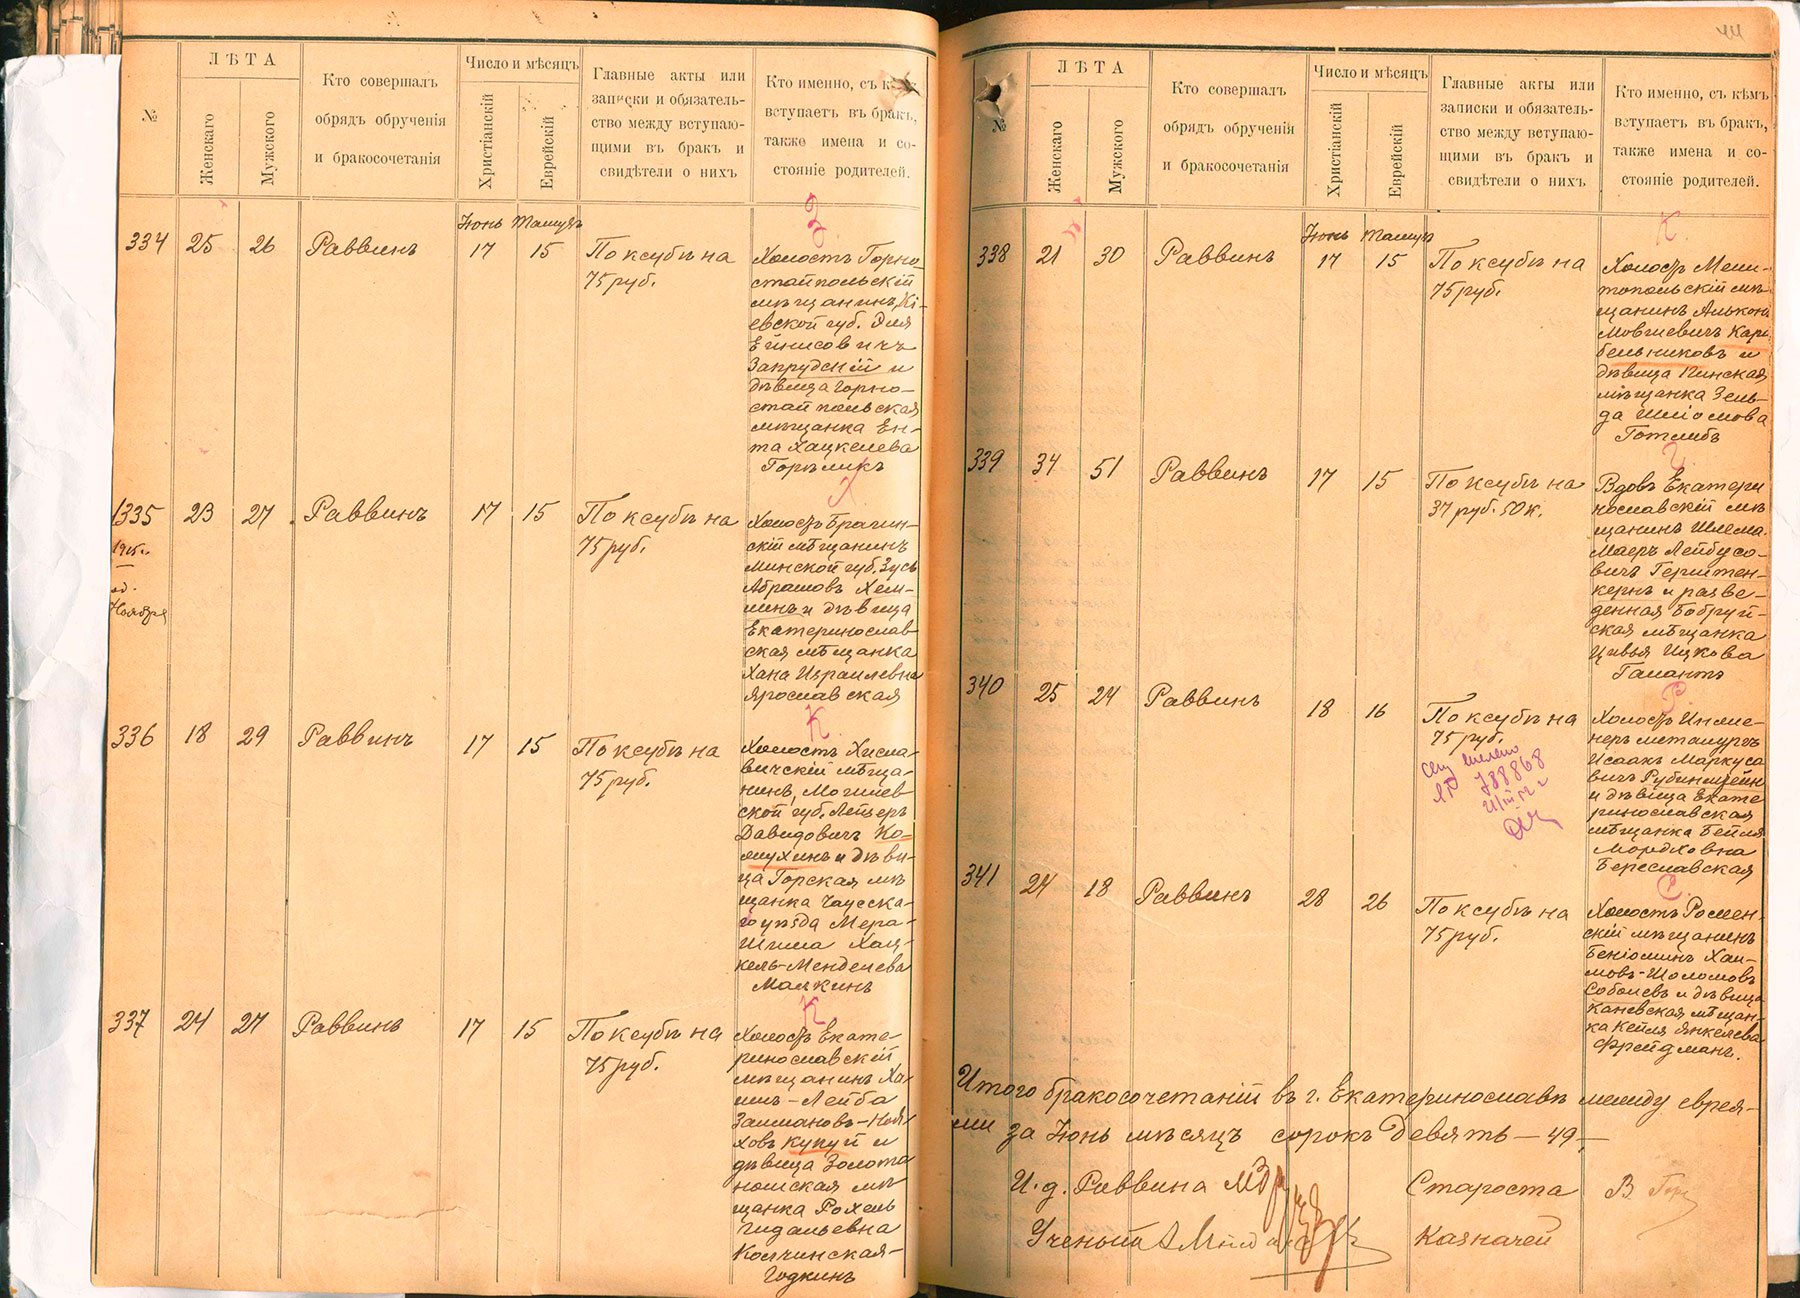 №
ЛѢТА
Женскаго
Мужского
Кто совершалъ
обрядъ обрученія
и бракосочетанія
Число и мѣсяцъ
Христіанскій
Еврейскій
Главные акты или
записки и обязатель-
ство между вступаю-
щими въ бракъ и
свидѣтели о нихъ
Кто именно, съ кѣмъ
вступаетъ въ бракъ,
также имена и со-
стояніе родителей.
Іюнь Тамузъ
З
334 25 26 Раввинъ 17 15 По ксубѣ на
75 руб.
Холостъ Горно-
стайпольскій
мѣщанинъ, Кі-
евской губ. Эля
Ейнисовичъ
Запрудскій и
дѣвица Горно-
стайпольская
мѣщанка Ен-
та Хацкелева
Горѣликъ
Х
335 23 27 Раввинъ 17 15 По ксубѣ на
75 руб.
Ноября
Холостъ Брагин-
скій мѣщанинъ
Минской губ. Зусь
Абрамовъ Хем-
чинъ и дѣвица
Екатеринослав-
ская мѣщанка
Хана Израилевна
Ярославская
К
336 18 29 Раввинъ 17 15 По ксубѣ на
75 руб.
Холостъ Хисла-
вичскій мѣща-
нинъ, Могилев-
ской губ. Лейзеръ
Давидовичъ Ко-
мухинъ и дѣви-
ца Горская мѣ
щанка Чаусска-
го уѣзда Мера-
Шима Хац-
кель-Менделева
Малкинъ
К
337 24 27 Раввинъ 17 15 По ксубѣ на
75 руб.
Холостъ Екате-
ринославскій
мѣщанинъ Ха-
имъ-Лейба
Залмановъ-Ноя-
ховъ Кукуй и
дѣвица Золото
ношская мѣ
щанка Рохель
Гидальевна
Колчинская-
Годкинъ
44
№
ЛѢТА
Женскаго
Мужского
Кто совершалъ
обрядъ обрученія
и бракосочетанія
Число и мѣсяцъ
Христіанскій
Еврейскій
Главные акты или
записки и обязатель-
ство между вступаю-
щими въ бракъ и
свидѣтели о нихъ
Кто именно, съ кѣмъ
вступаетъ въ бракъ,
также имена и со-
стояніе родителей.
Іюнь Тамузъ
К
338 21 30 Раввинъ 17 15 По ксубѣ на
75 руб.
Холостъ Мели-
топольскій мѣ-
щанинъ Алькона
Мовшевичъ Кара
бельниковъ и
дѣвица Пинская
мѣщанка Зель-
да Шліомова
Готлибъ
Г
339 34 51 Раввинъ 17 15 По ксубѣ на
37 руб. 50 к.
Вдовъ Екатери
нославскій мѣ
щанинъ Шлема-
Маеръ Лейбусо-
вичъ Герштен-
кернъ и разве-
денная Бобруй-
ская мѣщанка
Цивья Ицкова
Галантъ
Р
340 25 24 Раввинъ 18 16 По ксубѣ на
75 руб.
Холостъ Инже-
неръ металургъ
Исаакъ Маркусо
вичъ Рубинштейнъ
и дѣвица Екате
ринославская
мѣщанка Бейля
Мордховна
Береславская
С
341 24 18 Раввинъ 28 26 По ксубѣ на
75 руб.
Холостъ Ромен-
скій мѣщанинъ
Беніоминъ Хаи-
мовъ-Шоломовъ
Соболевъ и дѣвица
Каневская мѣщан-
ка Кейля Янкелева
Фрейдманъ.
Итого бракосочетаній въ г. Екатеринославѣ между еврея-
ми за Іюнь мѣсяцъ сорокъ девять — 49 —
И. д. Раввина Староста
Ученый Казначей